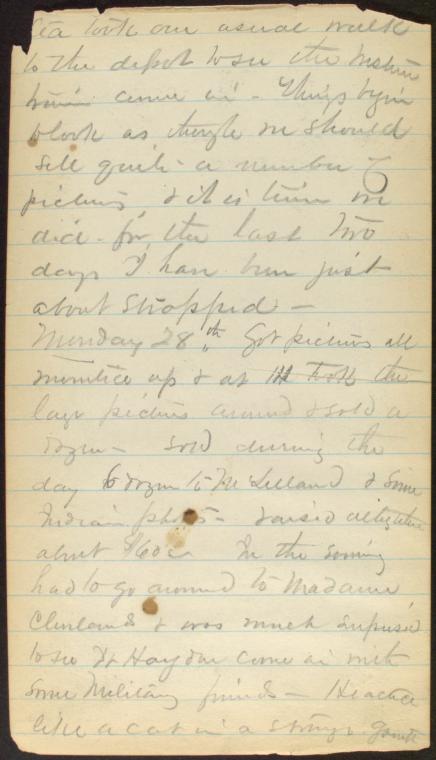 tea took our usual walk
to the depot to see the western
train come in - Things begin
to look as though we should
sell quite a number of
pictures & it is time we
did - for the last two
days I have been just
about strapped -
Monday 28th Got pictures all
mounted up & at took the
large pictures around & sold a
dozen - sold during the
day 6 dozen to & some
Indian photos - raised altogether
about $60 In the evening
had to go around to Madame
Clevelands & was much surprised
to see Dr Hayden come in with
some Military friends - He acted
like a cat in a strange garret